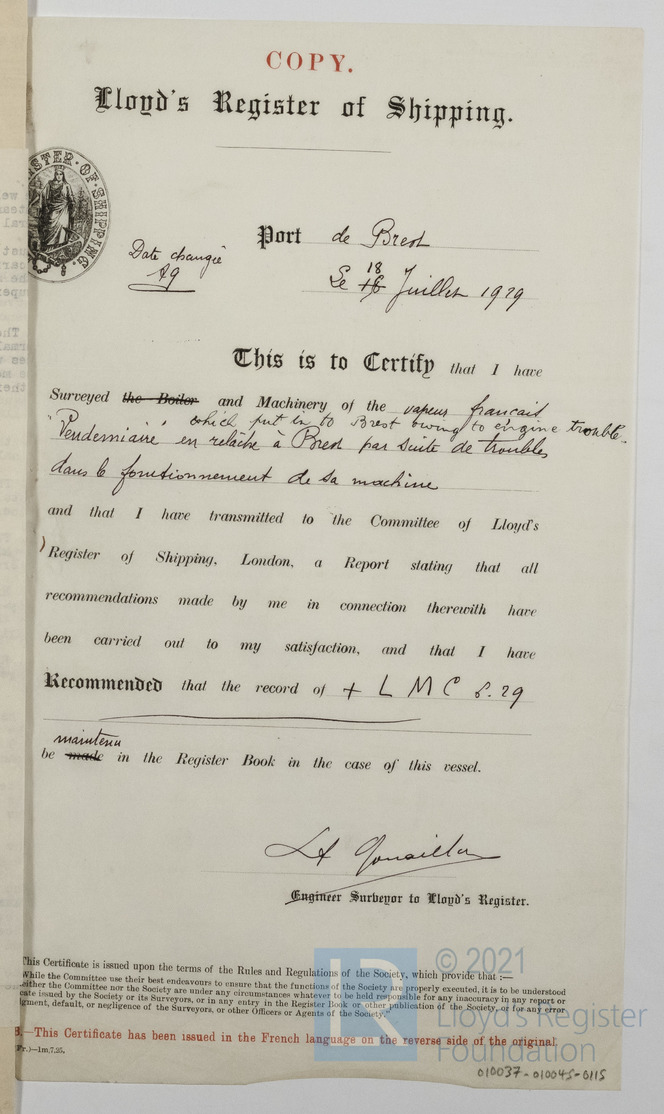 COPY.
Lloyd's Register of Shipping.
STER · OF · SHIPPING ·
Port de Brest
Date changée
Le 16 18 Juillet 1929
This is to Certify that I have
Surveyed the Boiler and Machinery of the vapeur francais
which put in to Brest owing to engine trouble.
"Vendemiaire" en relache à Brest par suite de troubles
dans le fonctionnement de sa machine
and that I have transmitted to the Committee of Lloyd's
Register of Shipping, London, a Report stating that all
recommendations made by me in connection therewith have
been carried out to my satisfaction, and that I have
Recommended that the record of + L M C 6.29
maintenu
be made in the Register Book in the case of this vessel.
Engineer Surveyor to Lloyd's Register.
This Certificate is issued upon the terms of the Rules and Regulations of the Society, which provide that :—
While the Committee use their best endeavours to ensure that the functions of the Society are properly executed, it is to be understood
either the Committee nor the Society are under any circumstances whatever to be held responsible for any inaccuracy in any report or
cate issued by the Society or its Surveyors, or in any entry in the Register Book or other publication of the Society, or for any error
gment, default, or negligence of the Surveyors, or other Officers or Agents of the Society."
B.—This Certificate has been issued in the French language on the reverse side of the original.
Fr.)—1m,7,25.
LR
© 2021
Lloyd's Register
Foundation
010037-010045-0115